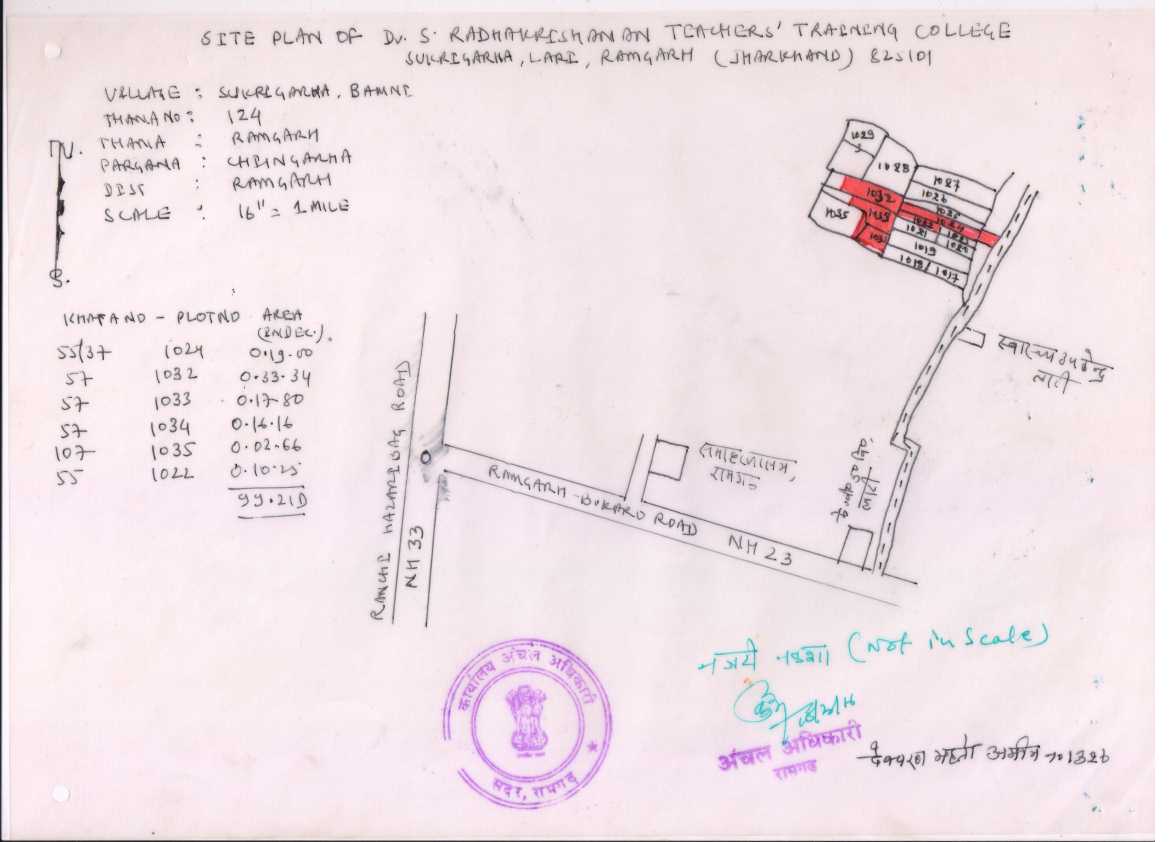 SITE PLAN OF Dr. S. RADHAKRISHANAN TEACHERS' TRAINING COLLEGE
SUKRIGARHA, LARI, RAMGARH (JHARKHAND) 825101
VILLAGE : SUKRIGARHA, BAMNI
THANA NO : 124
THANA : RAMGARH
PARGANA : CHAINGARHA
DIST : RAMGARH
SCALE : 16" = 1 MILE
N.
S.
KHATA NO - PLOT NO AREA
(IN DEC.).
55/37 1024 0.19.00
57 1032 0.33.34
57 1033 0.17.80
57 1034 0.16.16
107 1035 0.02.66
55 1022 0.10.25
99.21D
1029
1028
1027
1026
1025
1024
1032
1033
1035
1021
1019
1018/1017
स्वास्थ्य उपकेन्द्र
लारी
समाहरणालय,
रामगढ़
लारी
RANCHI HAZARIBAG ROAD
NH 33
RAMGARH-BOKARO ROAD NH 23
नजरी नक्शा (Not in Scale)
कार्यालय अंचल अधिकारी
सदर, रामगढ़
अंचल अधिकारी
रामगढ़
महतो अमीन